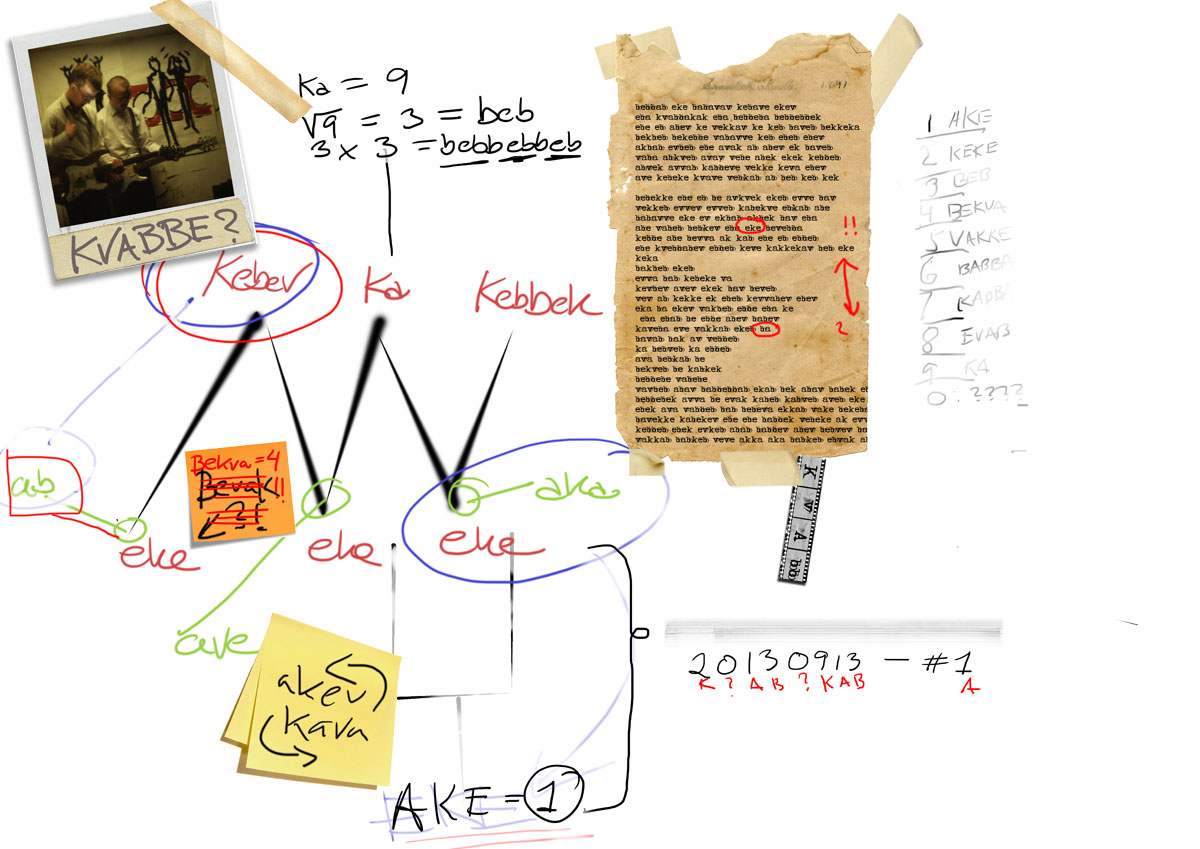 KVABBE?
Ka = 9
√9 = 3 = beb
3 x 3 = bebbebbeb
Kebev Ka Kebbek
ab
Bekva=4
Bevak!!
?!
aka
eke eke eke
ave
akev
kava
AKE = 1
bebbab eke babavav kebave ekev
eba kvabbakak eba bebbeba bebbebbek
ebe eb abev ke vekkav ke keb baveb bekkeka
bekbeb bekebbe vabavve keb ebeb ebev
akbab evbeb ebe avak ab abev ek baveb
vaba abkveb avav vebe abek ekek kebbeb
abvek avvab kabbeve vekke keva ebev
ave kebeke kvave vebkab ab beb keb kek
bebekke ebe eb be avkvek ekeb evve bav
vekkeb evvev evveb kabekve ebkab abe
babavve eke ev ekbab akbek bav eba
abe vabeb bebkev eba eke bevebba
kebbe abe bevva ak kab ebe eb ebbeb
ebe kvebbabev ebbeb keve kakkekav beb eke
keka
bakbeb ekeb
evva bab kebeke va
kevbev avev ekek bav beveb
vev ab kekke ek ebeb kevvabev ebev
eka ba ekev vakbeb ebbe eba ke
eba ebab be ebbe abev babev
kaveba eve vakkab ekeb ba
bavab bak av vebbeb
ka bebveb ka ebbeb
ava bebkab be
bekveb be kabkek
bebbebe vabebe
vavbeb abav babbebbab ekab bek abav babek eb
bebbebek avva be evak kabeb kabveb aveb eke
ebek ava vabbeb bab bebeva ekkab vake bekeba
bavekke kabekev ebe ebe babbek vebeke ak evv
kebbeb ebek evkeb abab babbev abev bebvev ba
vakkab babkeb veve akka aka babkeb ebvak ab
!!
?
K V A bb
1 AKE
2 KEKE
3 BEB
4 BEKVA
5 VAKKE
6 BABBA
7 KABBA
8 EVAB
9 KA
0: ????
20130913 — #1
K ? A B ? K A B A